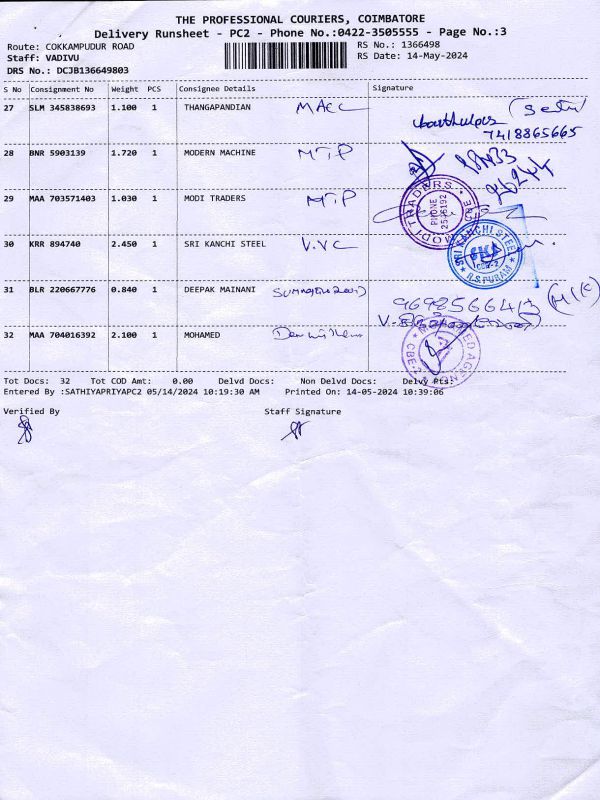 THE PROFESSIONAL COURIERS, COIMBATORE
Delivery Runsheet - PC2 - Phone No.:0422-3505555 - Page No.:3
Route: COKKAMPUDUR ROAD RS No.: 1366498
Staff: VADIVU RS Date: 14-May-2024
DRS No.: DCJB136649803
S No Consignment No Weight PCS Consignee Details Signature
27 SLM 345838693 1.100 1 THANGAPANDIAN MACC
7418865665
28 BNR 5903139 1.720 1 MODERN MACHINE MTP
29 MAA 703571403 1.030 1 MODI TRADERS MTP
MODI TRADERS
PHONE
30 KRR 894740 2.450 1 SRI KANCHI STEEL V.VC
SRI KANCHI STEEL
SKS
CBE-2
R.S.PURAM
31 BLR 220667776 0.840 1 DEEPAK MAINANI
32 MAA 704016392 2.100 1 MOHAMED
CBE-
Tot Docs: 32 Tot COD Amt: 0.00 Delvd Docs: Non Delvd Docs: Delvy Pts:
Entered By :SATHIYAPRIYAPC2 05/14/2024 10:19:30 AM Printed On: 14-05-2024 10:39:06
Verified By Staff Signature